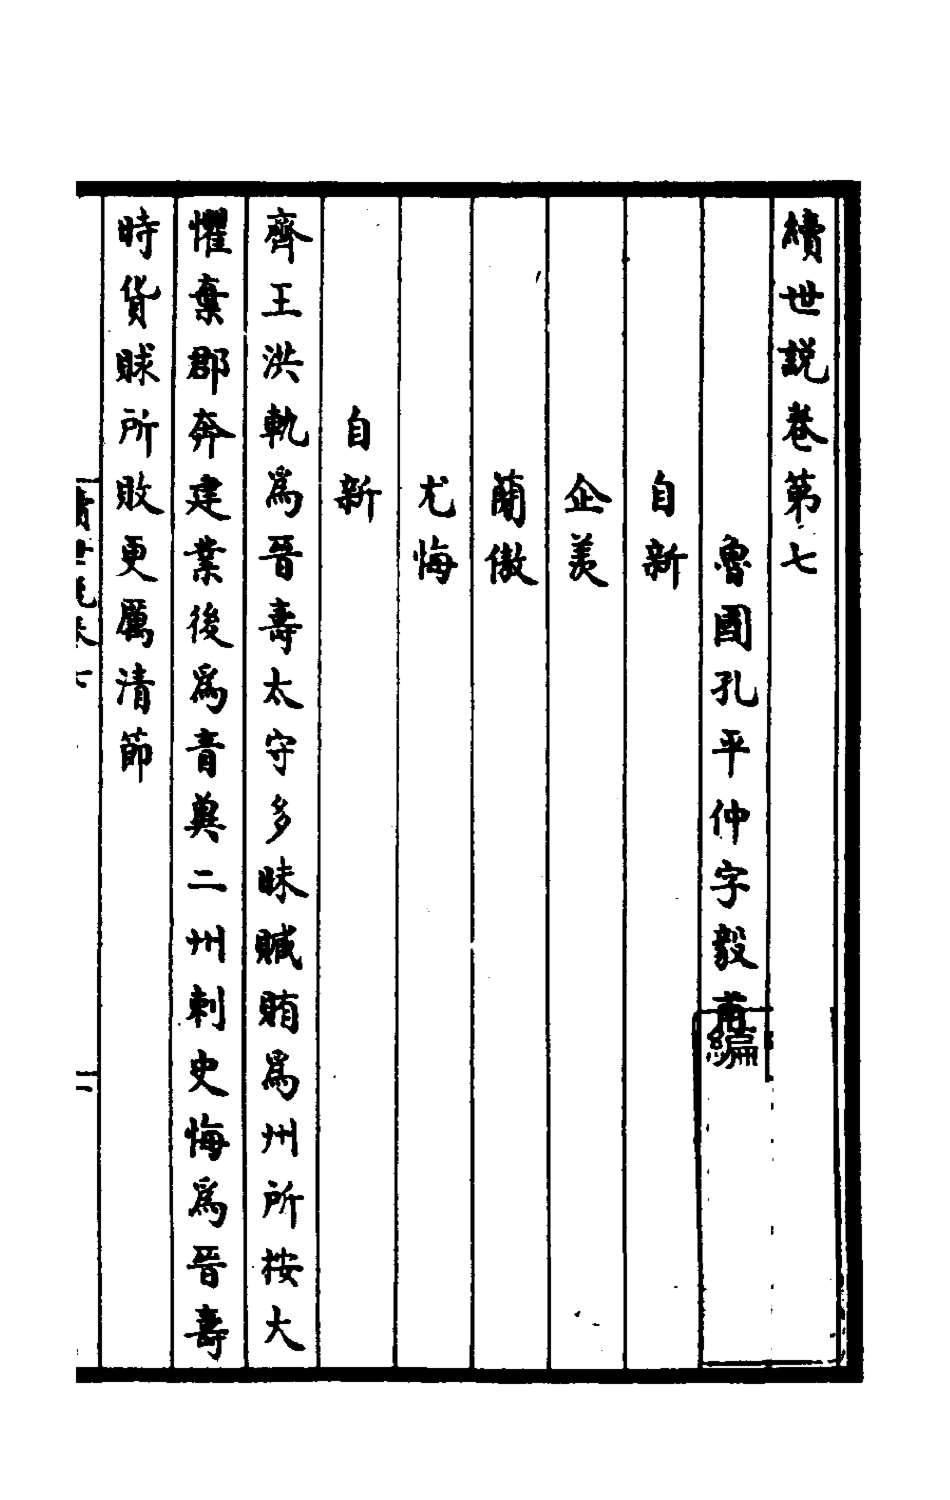 續世説卷第七
魯國孔平仲字毅甫編
自新
企羨
蕑傲
尤悔
自新
齊王洪軌爲晉壽太守多昧贓賄爲州所按大
懼棄郡奔建業後爲青兾二州刺史悔爲晉壽
時貨賕所敗更厲清節